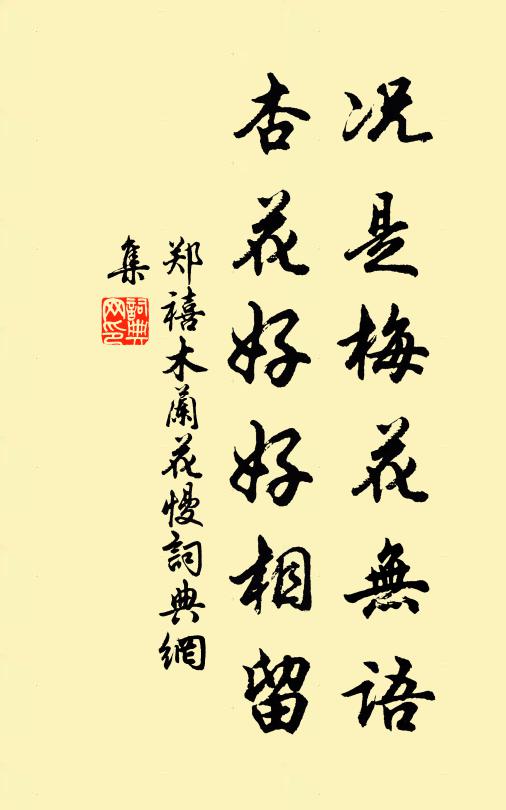 况是梅花無語
杏花好好相留
郑禧木蘭花慢詞典網
集
詞典網印